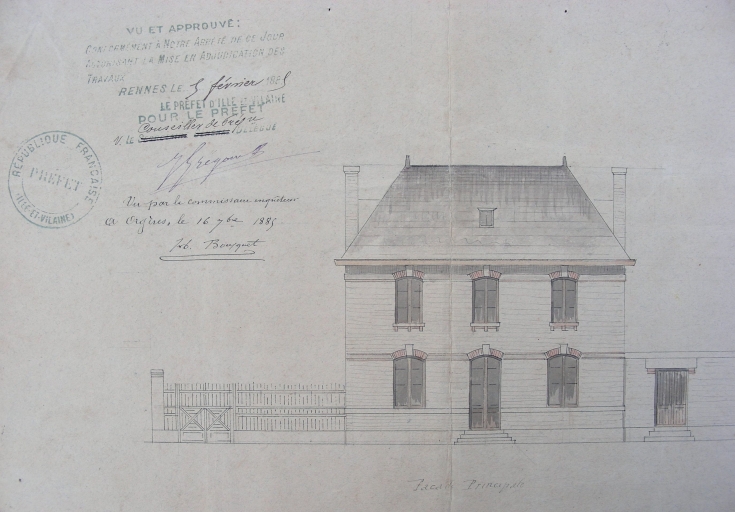 VU ET APPROUVÉ:
CONFORMÉMENT À NOTRE ARRÊTÉ DE CE JOUR
AUTORISANT LA MISE EN ADJUDICATION DES
TRAVAUX
RENNES LE, 5 février 188
LE PRÉFET D'ILLE ET VILAINE
POUR LE PRÉFET
Conseiller de préf
V. LE DÉLÉGUÉ
RÉPUBLIQUE FRANÇAISE
PRÉFET
(ILLE-ET-VILAINE)
Vu par le commissaire enquêteur
a Orgères, le 16 7bre 1885
Façade Principale